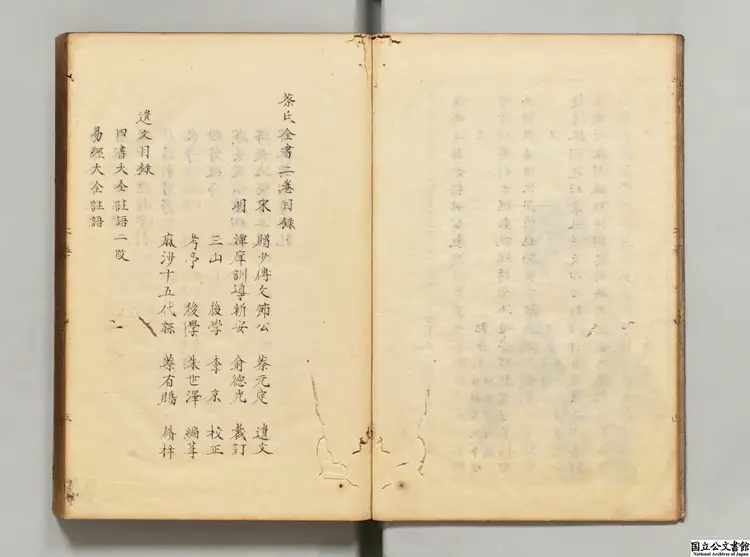 蔡氏全書二卷目錄
宋 贈少傅文節公 蔡元定 遺文
明 潭庠訓導新安 俞德光 裁訂
三山 後學 李京 校正
考亭 後學 朱世澤 編葺
麻沙十五代孫 蔡有鵾 脩梓
遺文目錄
四書大全註語二段
易經大全註語
国立公文書館
National Archives of Japan